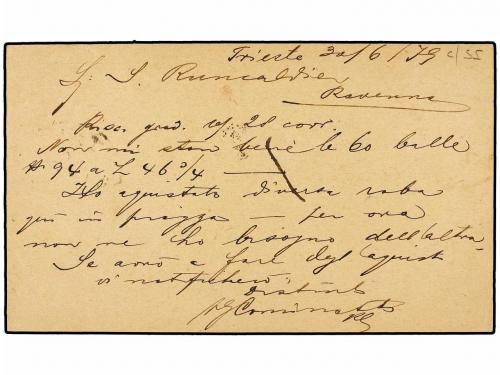 Trieste 30/6/79 c/55
S. Runcaldier
Ravenna
grad. 28 corr.
Non mi stan bene le 60 balle
94 a L 46 3/4
Ho aquistato diversa roba
qui in piazza — per ora
non ne ho bisogno dell'altra
Se avrò a fare degl aquisti
vi notificherò